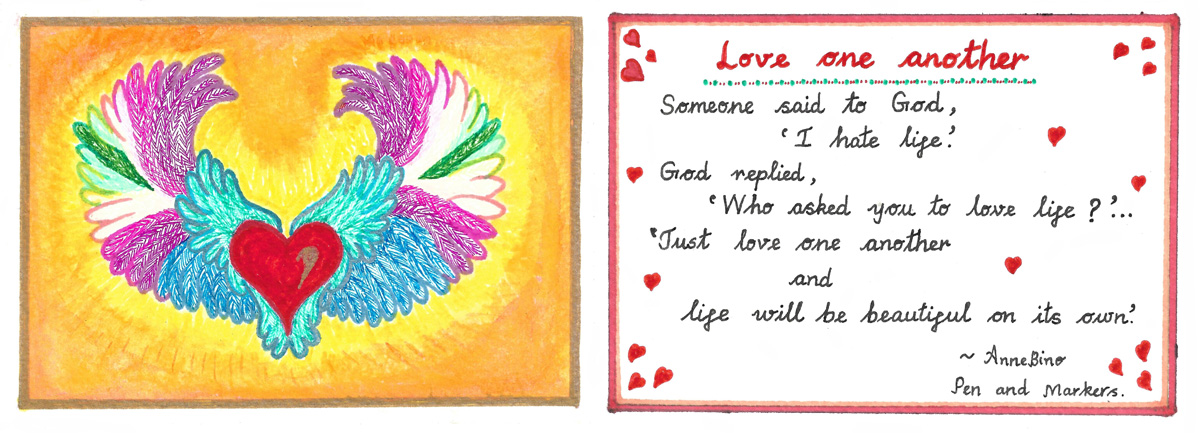 Love one another
Someone said to God,
‘I hate life.’
God replied,
‘Who asked you to love life ?’...
‘Just love one another
and
life will be beautiful on its own.’
~ AnneBino
Pen and Markers.